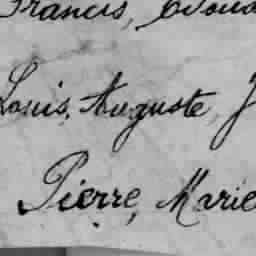 Francis,
Louis, Auguste, J
Pierre, Marie